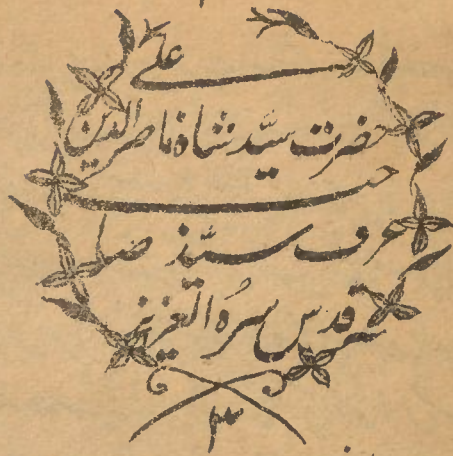 علی
حضرت سیّد شاہ ناصر الدین
عرف سیّد صا
حب
قدس سرہ العزیز
۳